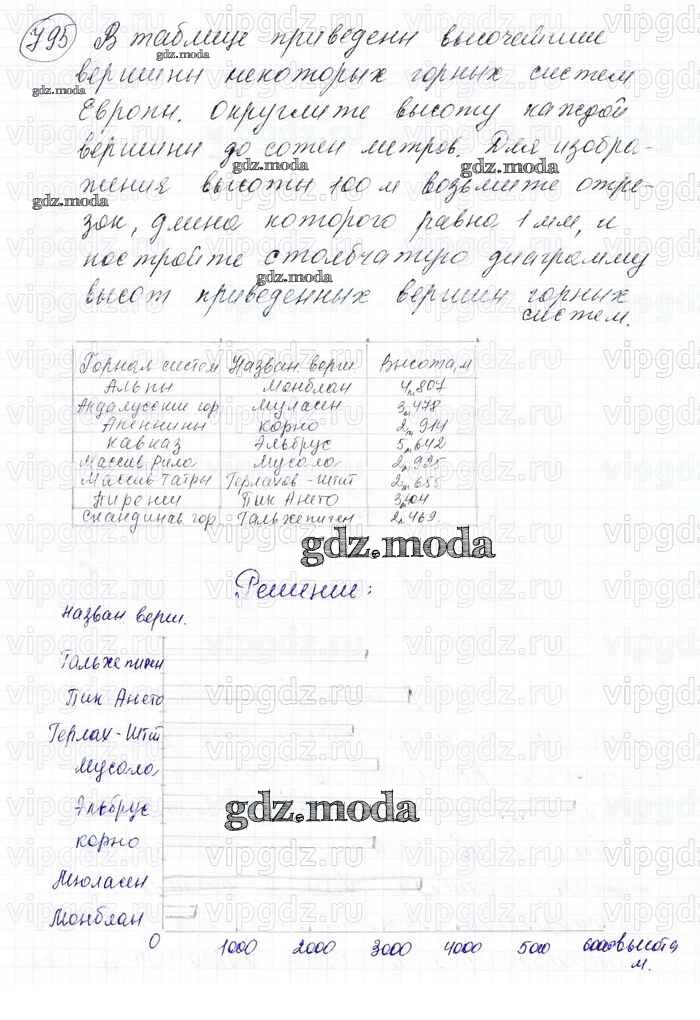 795 В таблице приведены высочайшие
вершины некоторых горных систем
Европы. Округлите высоту каждой
вершины до сотен метров. Для изобра-
жения высоты 100 м возьмите отре-
зок, длина которого равна 1 мм, и
постройте столбчатую диаграмму
высот приведенных вершин горных
систем.
Горная систем Назван верш Высота, м
Альпы Монблан 4,807
Андалузские гор Муласен 3,478
Апеннины Корно 2,914
Кавказ Эльбрус 5,642
Массив Рила Мусала 2,925
Массив Татры Герлахов-Штит 2,655
Пиренеи Пик Ането 3,404
Скандинав гор Гальхепигген 2,469
gdz.moda
Решение:
Назван верш.
Гальхепигген
Пик Ането
Герлах-Штит
Мусала
Эльбрус
gdz.moda
Корно
Мюласен
Монблан
0 1000 2000 3000 4000 5000 6000 высота
м.